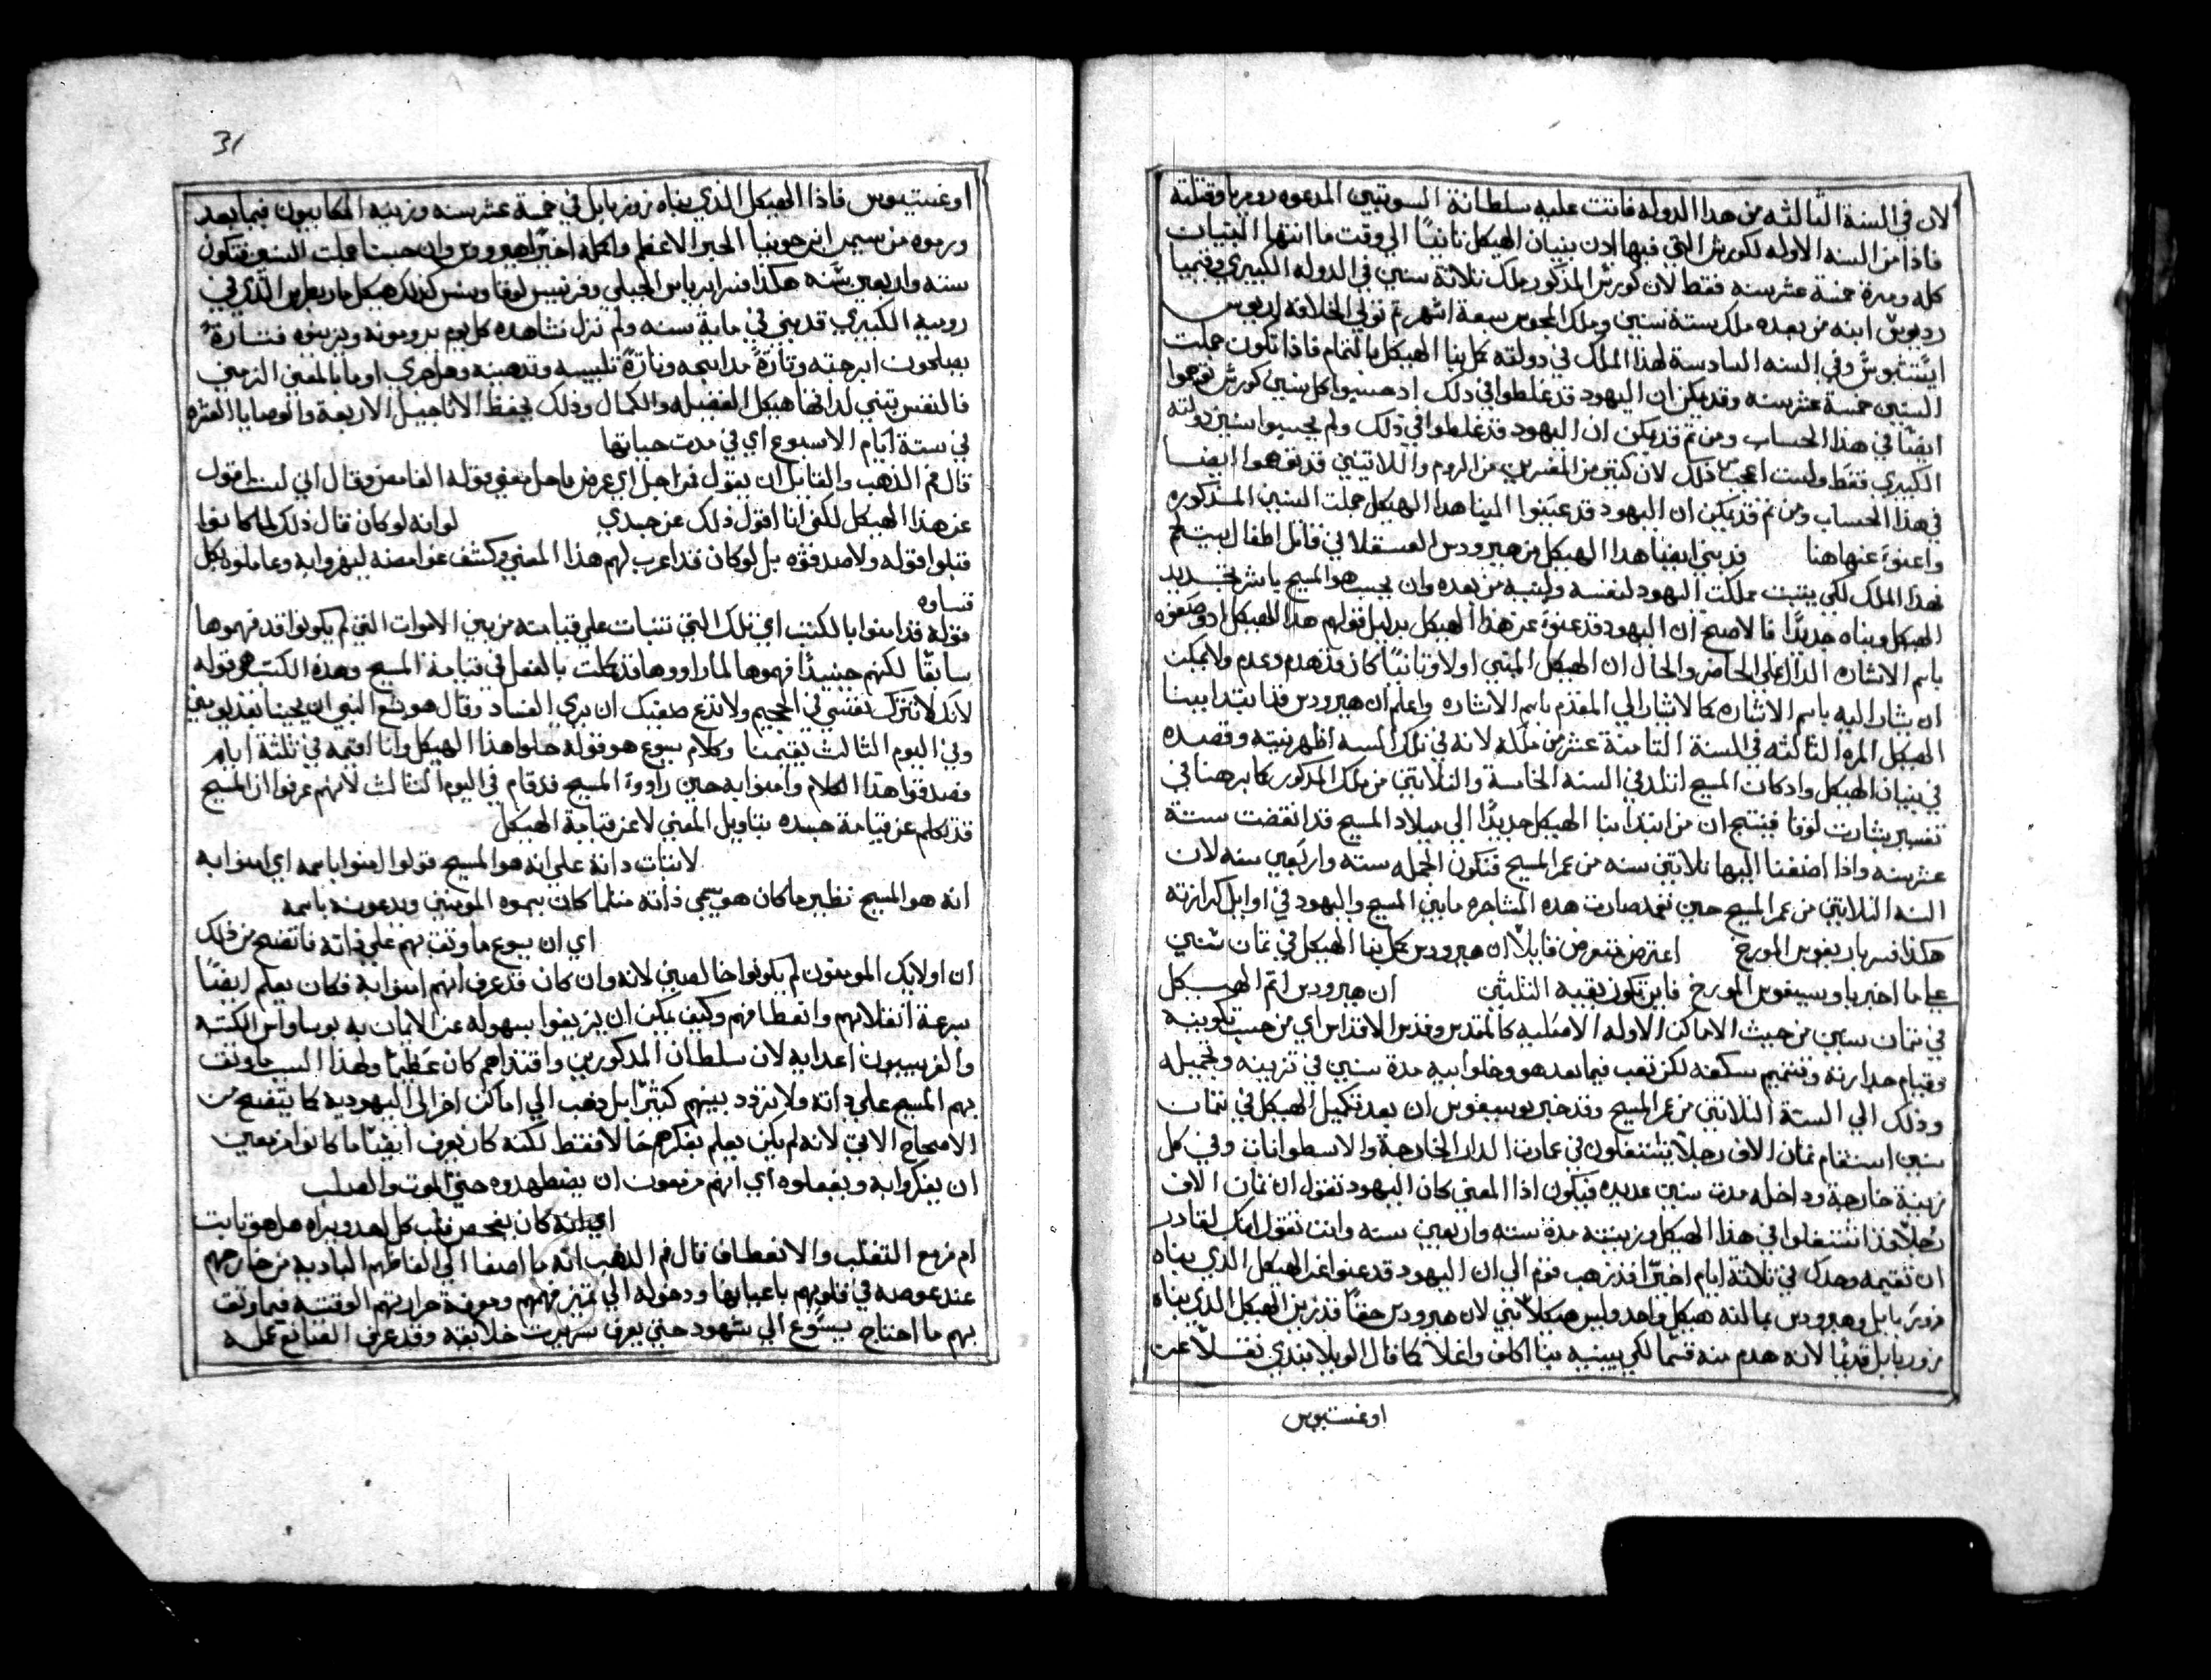 لان في السنة الثالثه من هدا الدوله قامت عليه سلطانة السويتيين المدعوه روميريا وقتلته
فاذا من السنه الاوله لكورش التي فيها اذن ببنيان الهيكل ثانيًا الي وقت ما انتها البنيات
كله ومدة خمسة عشر سنه فقط لان كورش المذكور ملك ثلاثة سنين في الدوله الكبيري وقمبيا
رديوش ابنه من بعده ملك ستة سنين وملك المجوس سبعة اشهر ثم تولي الخلافه اريوس
ايتشبوش وفي السنه السادسة لهذا الملك في دولته كمل بنا الهيكل بالتمام فاذا تكون جملت
السنين خمسة عشر سنه وقد يمكن ان اليهود قد غلطوا في ذلك اذ حسبوا كل سنين كورش توهموا
ايضًا في هذا الحساب ومن ثم قد يمكن ان اليهود قد غلطوا في ذلك ولم يحسبوا سنين دولته
الكبيري فقط ولست اعجب ذلك لان كثير من المفسرين من الروم واللاتينين قد توهموا ايضا
في هذا الحساب ومن ثم قد يمكن ان اليهود قد عينوا الينا هدا الهيكل جملت السنين المذكوره
واعنوة عنها هنا قد بني ايضا هدا الهيكل من هيرودس العسقلاني قاتل اطفال بيت لحم
فهذا الملك لكي يثبت مملكت اليهود لنفسه ولبنيه من بعده وان يحسب هو المسيح باشر بتجديد
الهيكل وبناه جديدًا فالاصح ان اليهود قد عنوة عن هذا الهيكل بدليل قولهم هدا الهيكل اذ وضعوه
باسم الاشاره الدال علي الحاضر والحال ان الهيكل المبني اولا وثانيًا كان قد هدم وعدم ولا يمكن
ان يشار اليه باسم الاشاره كما لا يشار الي المقدم باسم الاشاره واعلم ان هيرودس قد ابتدا ببنا
الهيكل المره الثالثه في السنة الثامنة عشر من ملكه لانه في تلك السنه اظهر نيته وقصده
في بنيان الهيكل واد كان المسيح اتلد في السنه الخامسة والثلاثين من ملك المدكور كما برهنا في
تفسير بشارت لوقا فينتج ان من ابتدا بنا الهيكل جديدًا الي ميلاد المسيح قد انقضت ستة
عشر سنه واذا اضفنا اليها ثلاثين سنه من عمر المسيح فتكون الجمله سته واربعين سنه لان
السنه الثلاثين من عمر المسيح حين تعمد صارت هده المشاجره ما بين المسيح واليهود في اوايل كرازته
هكذا فسر باريغوس المورخ اعترض متعرض قايلاً ان هيرودس كمل بنا الهيكل في ثمان سنين
علي ما اخبر باوسيفوس المورخ فاين تكون بقيه الثلثين ان هيرودس اتم الهيكل
في ثمان سنين من حيث الاماكن الاوله الاصليه كالمقدس وقدس الاقداس اي من حيث تكوينه
وقيام جدارته وتتميم سكفه لكن تعب فيما بعد هو وخلوابيه مدة سنين في تزيينه وتجميله
وذلك الي الستة الثلاثين من عمر المسيح وقد خبر يوسيفوس ان بعد تكميل الهيكل في ثمان
سنين استقام ثمان الاف رجلاً يشتغلون في عمارت الدار الخارجة والاسطوانات وفي كل
زينة خارجة وداخله مدت سنين عديده فيكون اذا المعني كان اليهود تقول ان ثمان الاف
رجلاً قد اشتغلوا في هذا الهيكل وزينته مدة سته واربعين سنه وانت تقول انك لقادر
ان تقيمه وحدك في ثلاثة ايام اخيرًا قد ذهب قوم الي ان اليهود قد عنوا عن الهيكل الذي بناه
زوربابل وهيرودس بما لنه هيكل واحد وليس هيكلاً ثني لان هيرودس حقًا قد زين الهيكل الذي بناه
زوربابل قديمًا لانه هدم منه قسمًا لكي يبينيه بنا اكلف واغلا كما قال الويلابندي نقلاً عن
اوغستيوس
31
اوغستينوس فاذا الهيكل الذي بناه زوزبابل في خمسة عشر سنه وزينه المكابيون فيما بعد
ورموه من سيمر ان حوينا الحبر الاعظم وكمله اخيرًا هيرودس وان حسنا جملت السنين فتكون
سته واربعين سنه هكذا فسر ايرياس الجبلي وفرنسيس لوقا وينس كذلك هيكل ماربطرس الذي في
روميه الكبيري قد بني في ماية سنه ولم نزل نشاهده كل يوم يرومونه ويزينوه فتارةً
يصلحون ابرجته وتارةً مدابحه وتارةً تلبيسه وتدهينه وهلم جري اوما بالمعني الرمزي
فالنفس تبني لداتها هيكل الفضيله والكمال وذلك بحفظ الاناجيل الاربعة والوصايا العشره
في ستة ايام الاسبوع اي في مدت حياتها
قال فم الذهب والقايل ان يقول من اجل اي عرض ما حل معني قوله الغامض وقال اني لست اقول
عن هذا الهيكل لكني انا اقول ذلك عن جسدي لو انه لو كان قال ذلك لما كانوا
قبلوا قوله ولا صدقوه بل لو كان قد اعرب لهم هذا المعني وكشف غوامضه ليهزوا به وعاملوه بكل
قساوه
قوله فذ امنوا بالكتب اي تلك التي تنبات علي قيامته من بين الاموات التي لم يكونوا قد فهموها
سابقًا لكنهم حينيدًا فهموها لما راووها قد كملت بالفعل في قيامة المسيح وهذه الكتب هو قوله
لانك لا تترك نفسي في الجحيم ولا تدع صفيك ان يري الفساد وقال هوشع النبي ان يحينا بعد يومين
وفي اليوم الثالث يقيمنا وكلام يسوع هو قوله حلوا هذا الهيكل وانا اقيمه في ثلثة ايام
فصدقوا هدا الكلام وامنوا به حين راووة المسيح قد قام في اليوم الثالث لانهم عرفوا ان المسيح
قد تكلم عن قيامة جسده بتاويل المعني لا عن قيامة الهيكل
لاتبات داتة علي انه هو المسيح قولوا امنوا باسمه اي امنوا به
انه هو المسيح نظير ما كان هو يسمي ذاته مثلما كان يسموه المومنين ويدعونه باسمه
اي ان يسوع ما وثق بهم علي ذاته فاتضح من ذلك
ان اولايك المومنون لم يكونوا خالصين لانه وان كان قد عرف انهم امنوا به فكان يعلم ايضًا
سرعة انقلابهم وانعطافهم وكيف يمكن ان يزيغوا بسهوله عن الايمان به بوسواس الكتبه
والفريسيون اعدايه لان سلطان المدكورين واقتدارهم كان عظيمًا ولهذا السبب ما وثق
بهم المسيح علي داته ولا تردد بينهم كثيرًا بل دهب الي اماكن اخر الي اليهودية كما يتضح من
الاصحاح الاتي لانه لم يكن يعلم بفكرهم حالاً فقط لكنه كان يعرف ايضًا ما كانوا مزمعين
ان يفكروا به ويفعلوه اي انهم مزمعون ان يضطهدوه حتي الموت والصلب
اي انه كان يفحص قلب كل احد ويراه هل هو ثابت
ام مزمع التقلب والانعطاف قال فم الذهب انه ما اصفا الي الفاظهم البادية من خارجهم
عند غوصه في قلوبهم باعيانها ودخوله الي تميز فهمهم ومعرفة حرارتهم الوقتيه فيما وثق
بهم ما احتاج يسوع الي شهود حتي يعرف سريرت خلايقه وقد عرف الصانع عمله